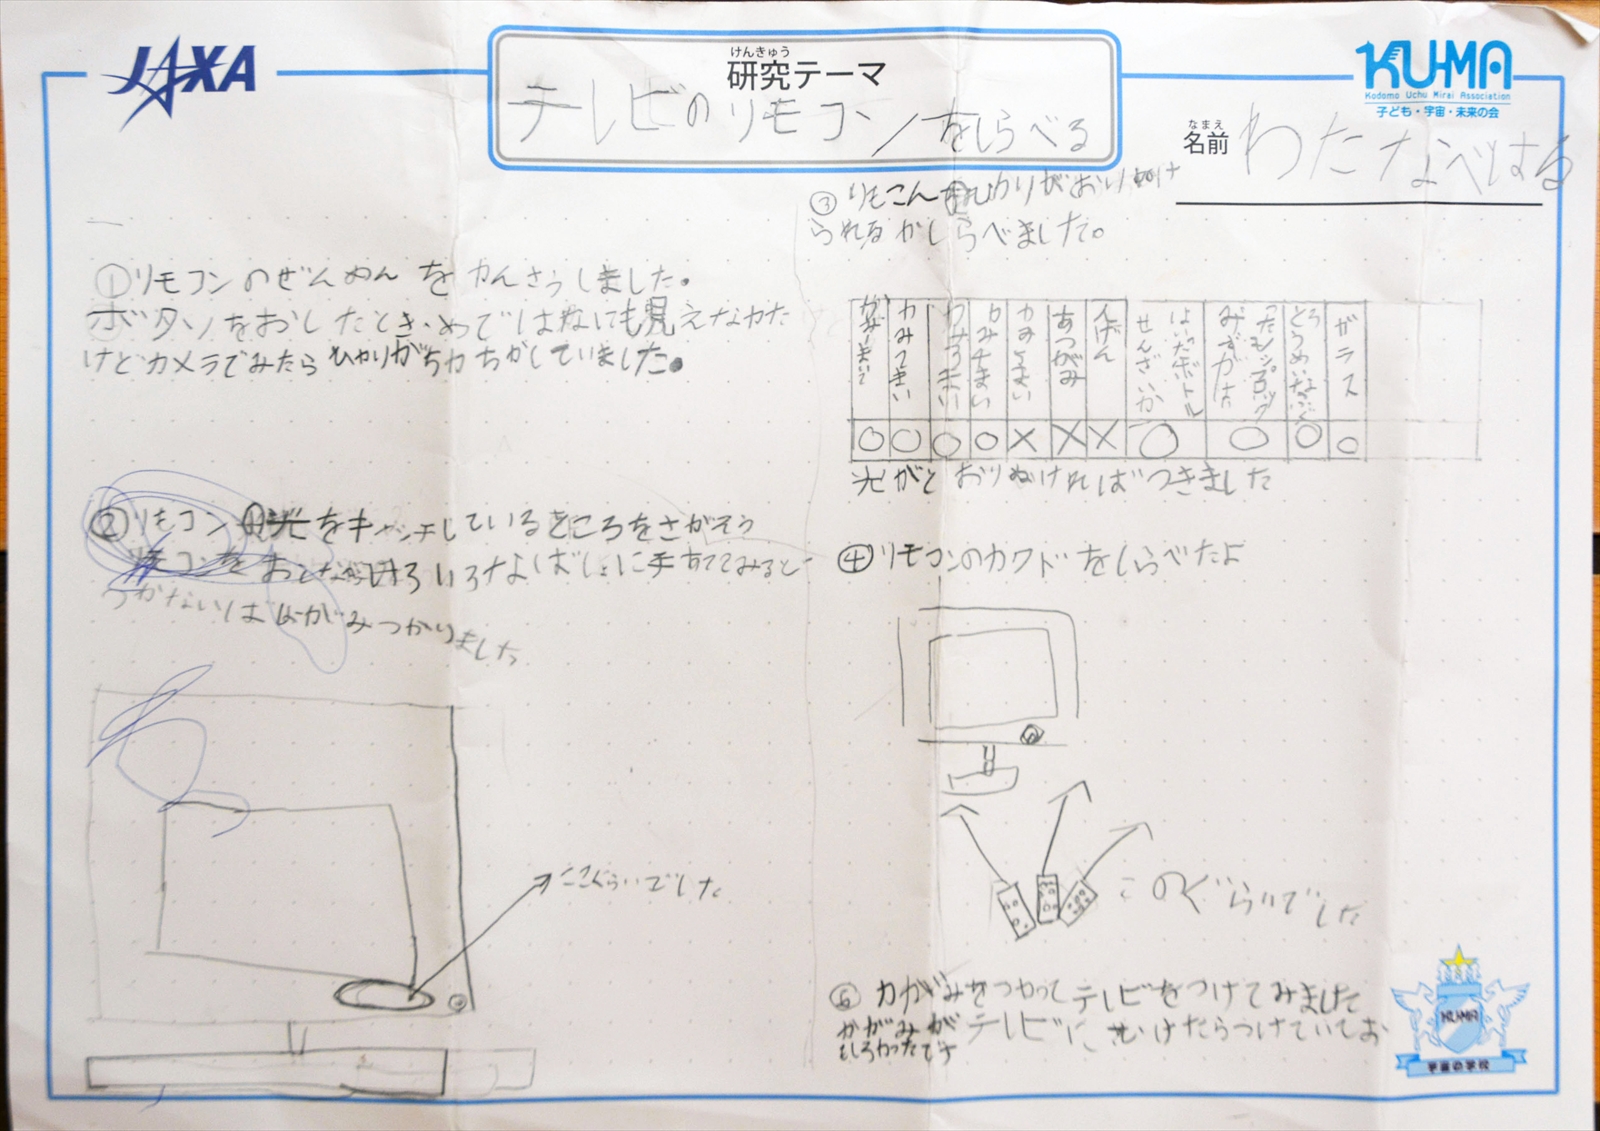 JAXA
けんきゅう
研究テーマ
テレビのリモコンをしらべる
KU-MA
Kodomo Uchu Mirai Association
子ども・宇宙・未来の会
なまえ
名前
わたなべはる
①リモコンのぜんめんをかんさつしました。
ボタンをおしたとき、めでは 見えなかた
けどカメラでみたらひかりがちかちかしていました。
②リモコン 光をキャッチしているところをさがそう
リモコンをおしながらいろいろなばしょに手あててみると
つかないばしょがみつかりました
ここぐらいでした
③リモこん ひかりがおりぬけ
られるかしらべました。
かみ1まい
かみ2まい
かみ3まい
かみ4まい
かみ5まい
あつがみ
にんげん
せんざいが
はいったボトル
みずがはいった
ジップロック
とうめいな
ガラス
○ ○ ○ ○ × × × ○ ○ ○ ○
光がとおりぬければつきました
④リモコンのカクドをしらべたよ
このぐらいでした
⑥カがみをつかってテレビをつけてみました
かがみがテレビにむけたらつけていてお
もしろかったです
KU-MA
宇宙の学校